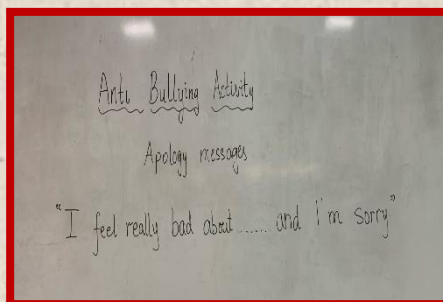 Anti Bullying Activity
Apology messages
"I feel really bad about....... and I'm sorry"